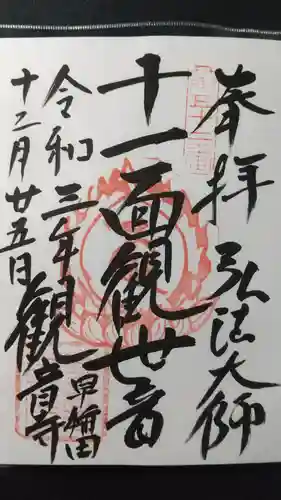 奉拝 弘法大師
十一面観世音
令和三年
十二月廿五日
早稲田
観音寺